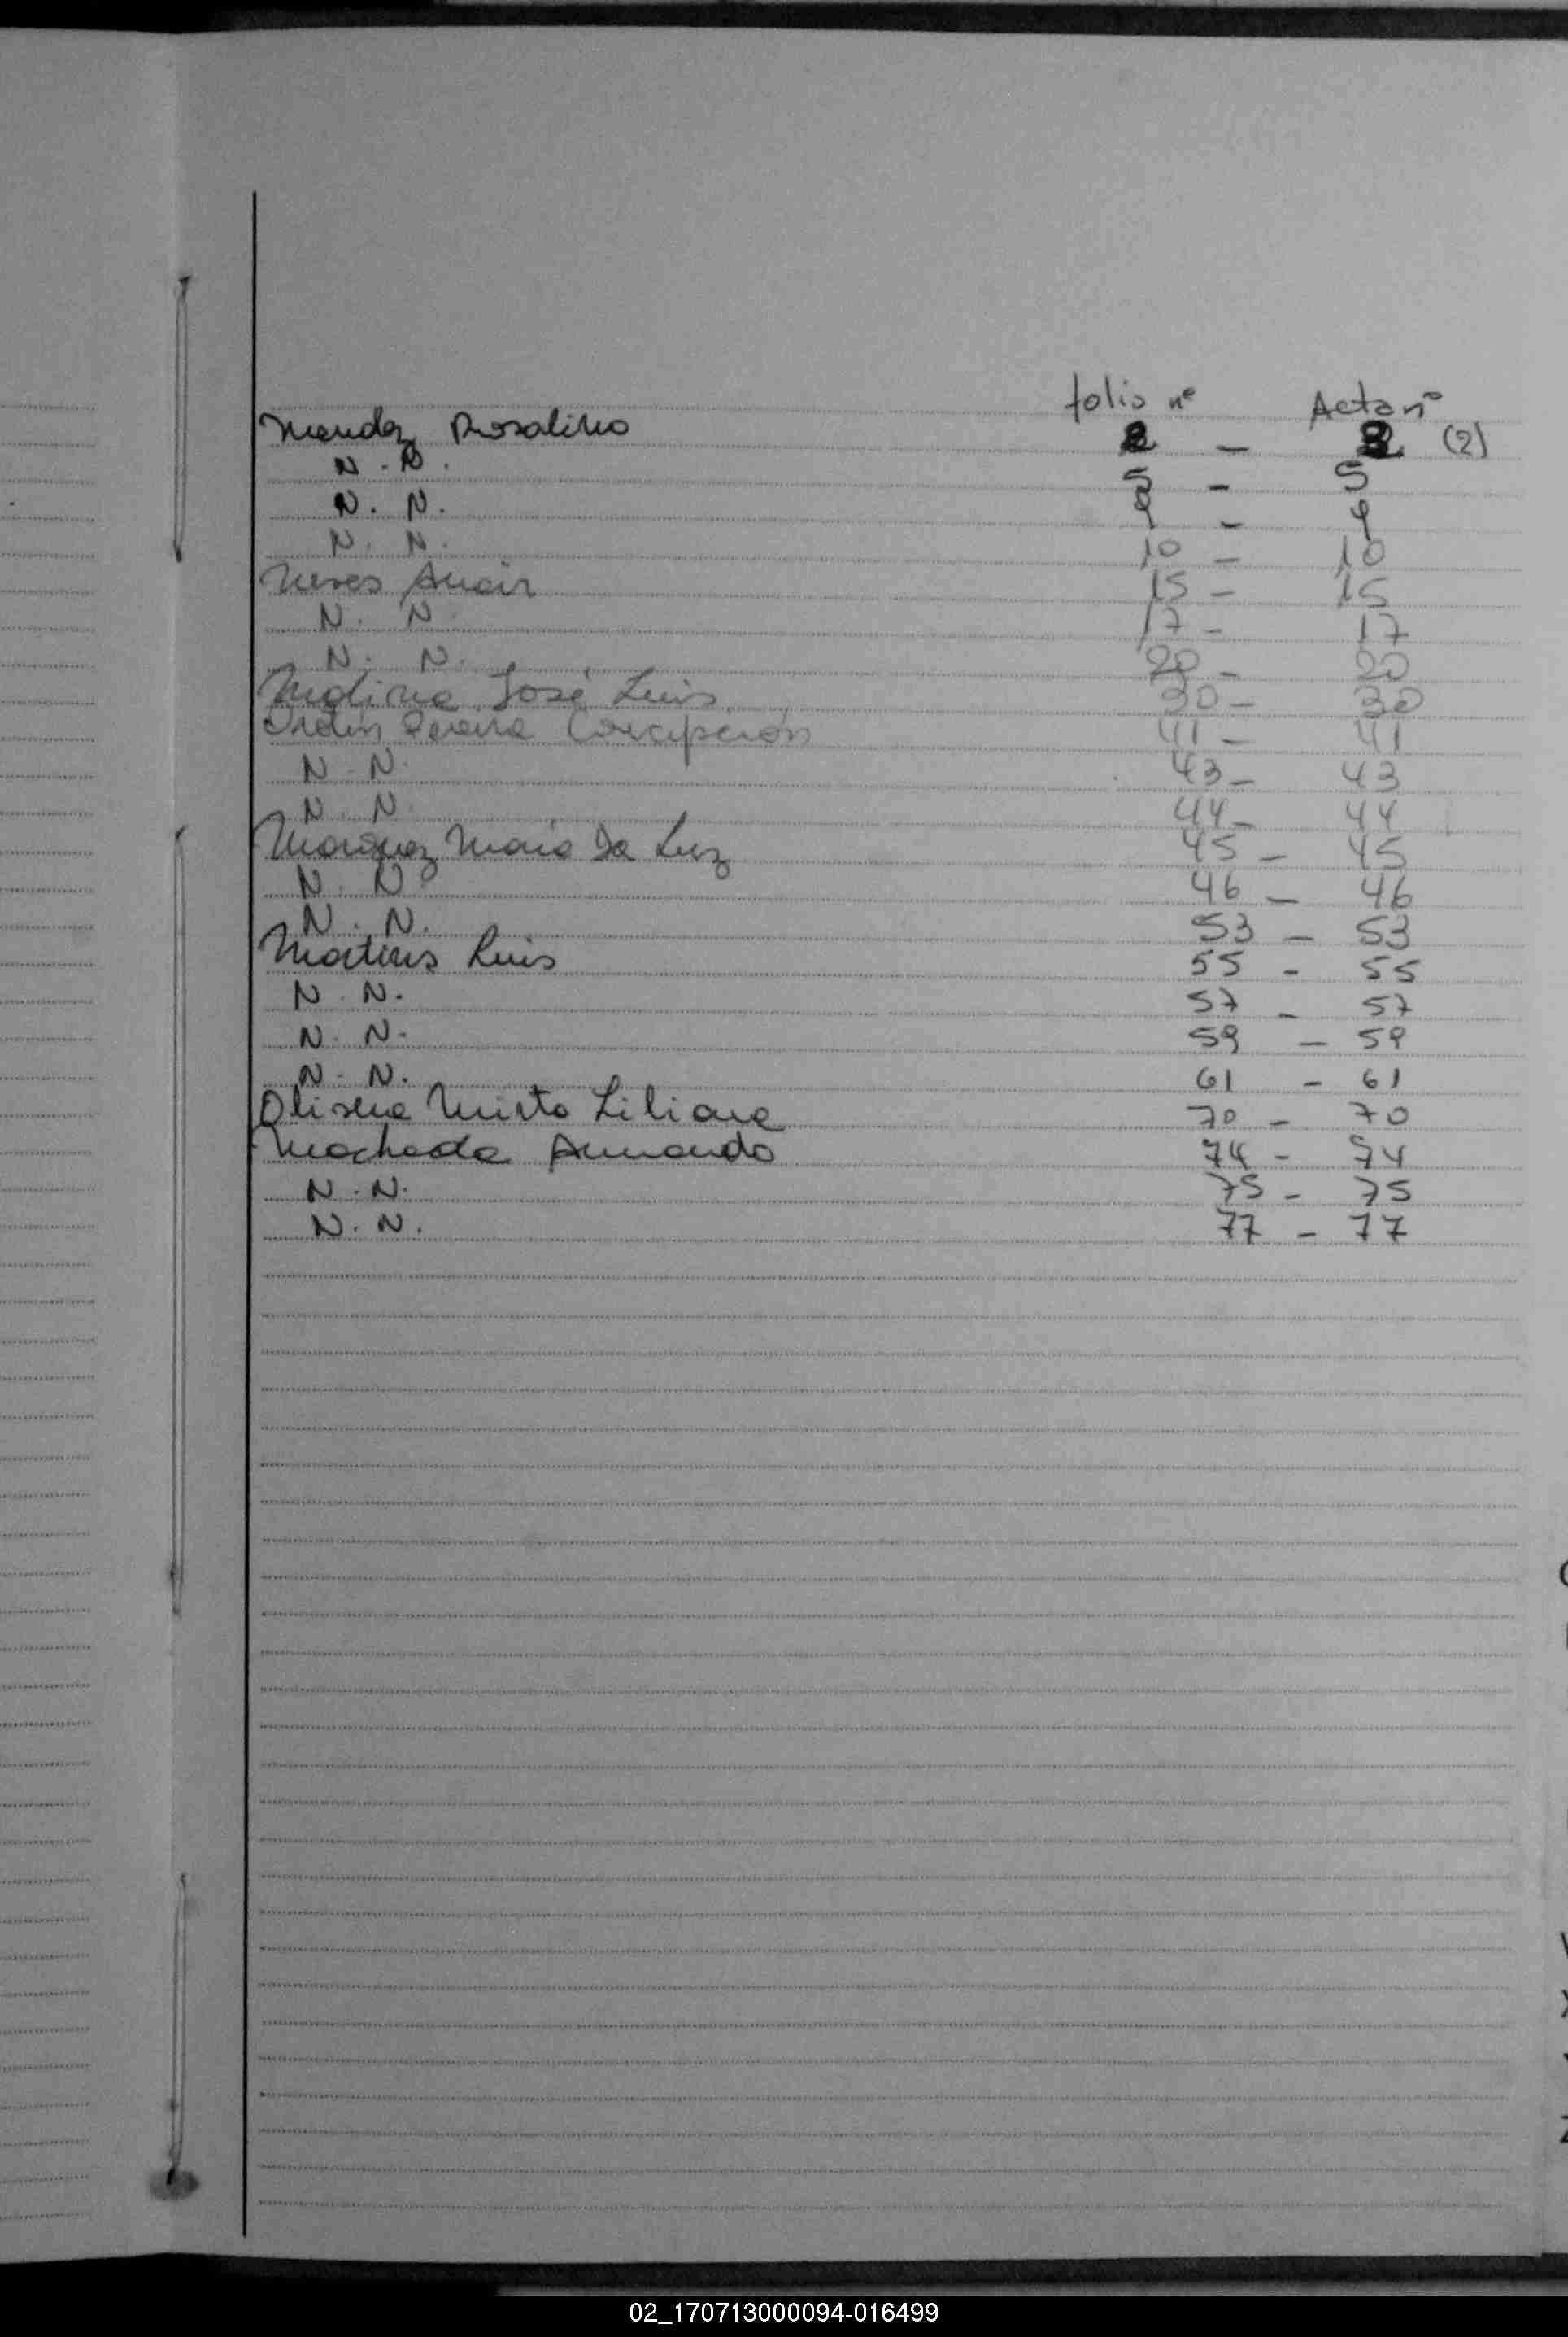 folio nº Acta nº
Mendez Rosalino 2 - 2 (2)
N. N. 5 - 5
N. N. 9 - 9
N. N. 10 - 10
Neves Anair 15 - 15
N. N. 17 - 17
N. N. 20 - 20
Molina José Luis 30 - 30
Pereira Concepción 41 - 41
N. N. 43 - 43
N. N. 44 - 44
Marquez Maria Da Luz 45 - 45
N. N. 46 - 46
N. N. 53 - 53
Martins Luis 55 - 55
N. N. 57 - 57
N. N. 59 - 59
N. N. 61 - 61
Olivera Mirta Liliana 70 - 70
Machado Armando 74 - 74
N. N. 75 - 75
N. N. 77 - 77
02_170713000094-016499